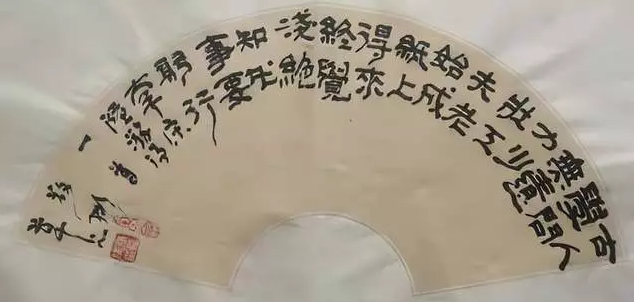 古人
學問
無遺
力少
壯工
夫老
始成
紙上
得來
終覺
淺絕
知此
事要
躬行
宋
陸游詩
一首